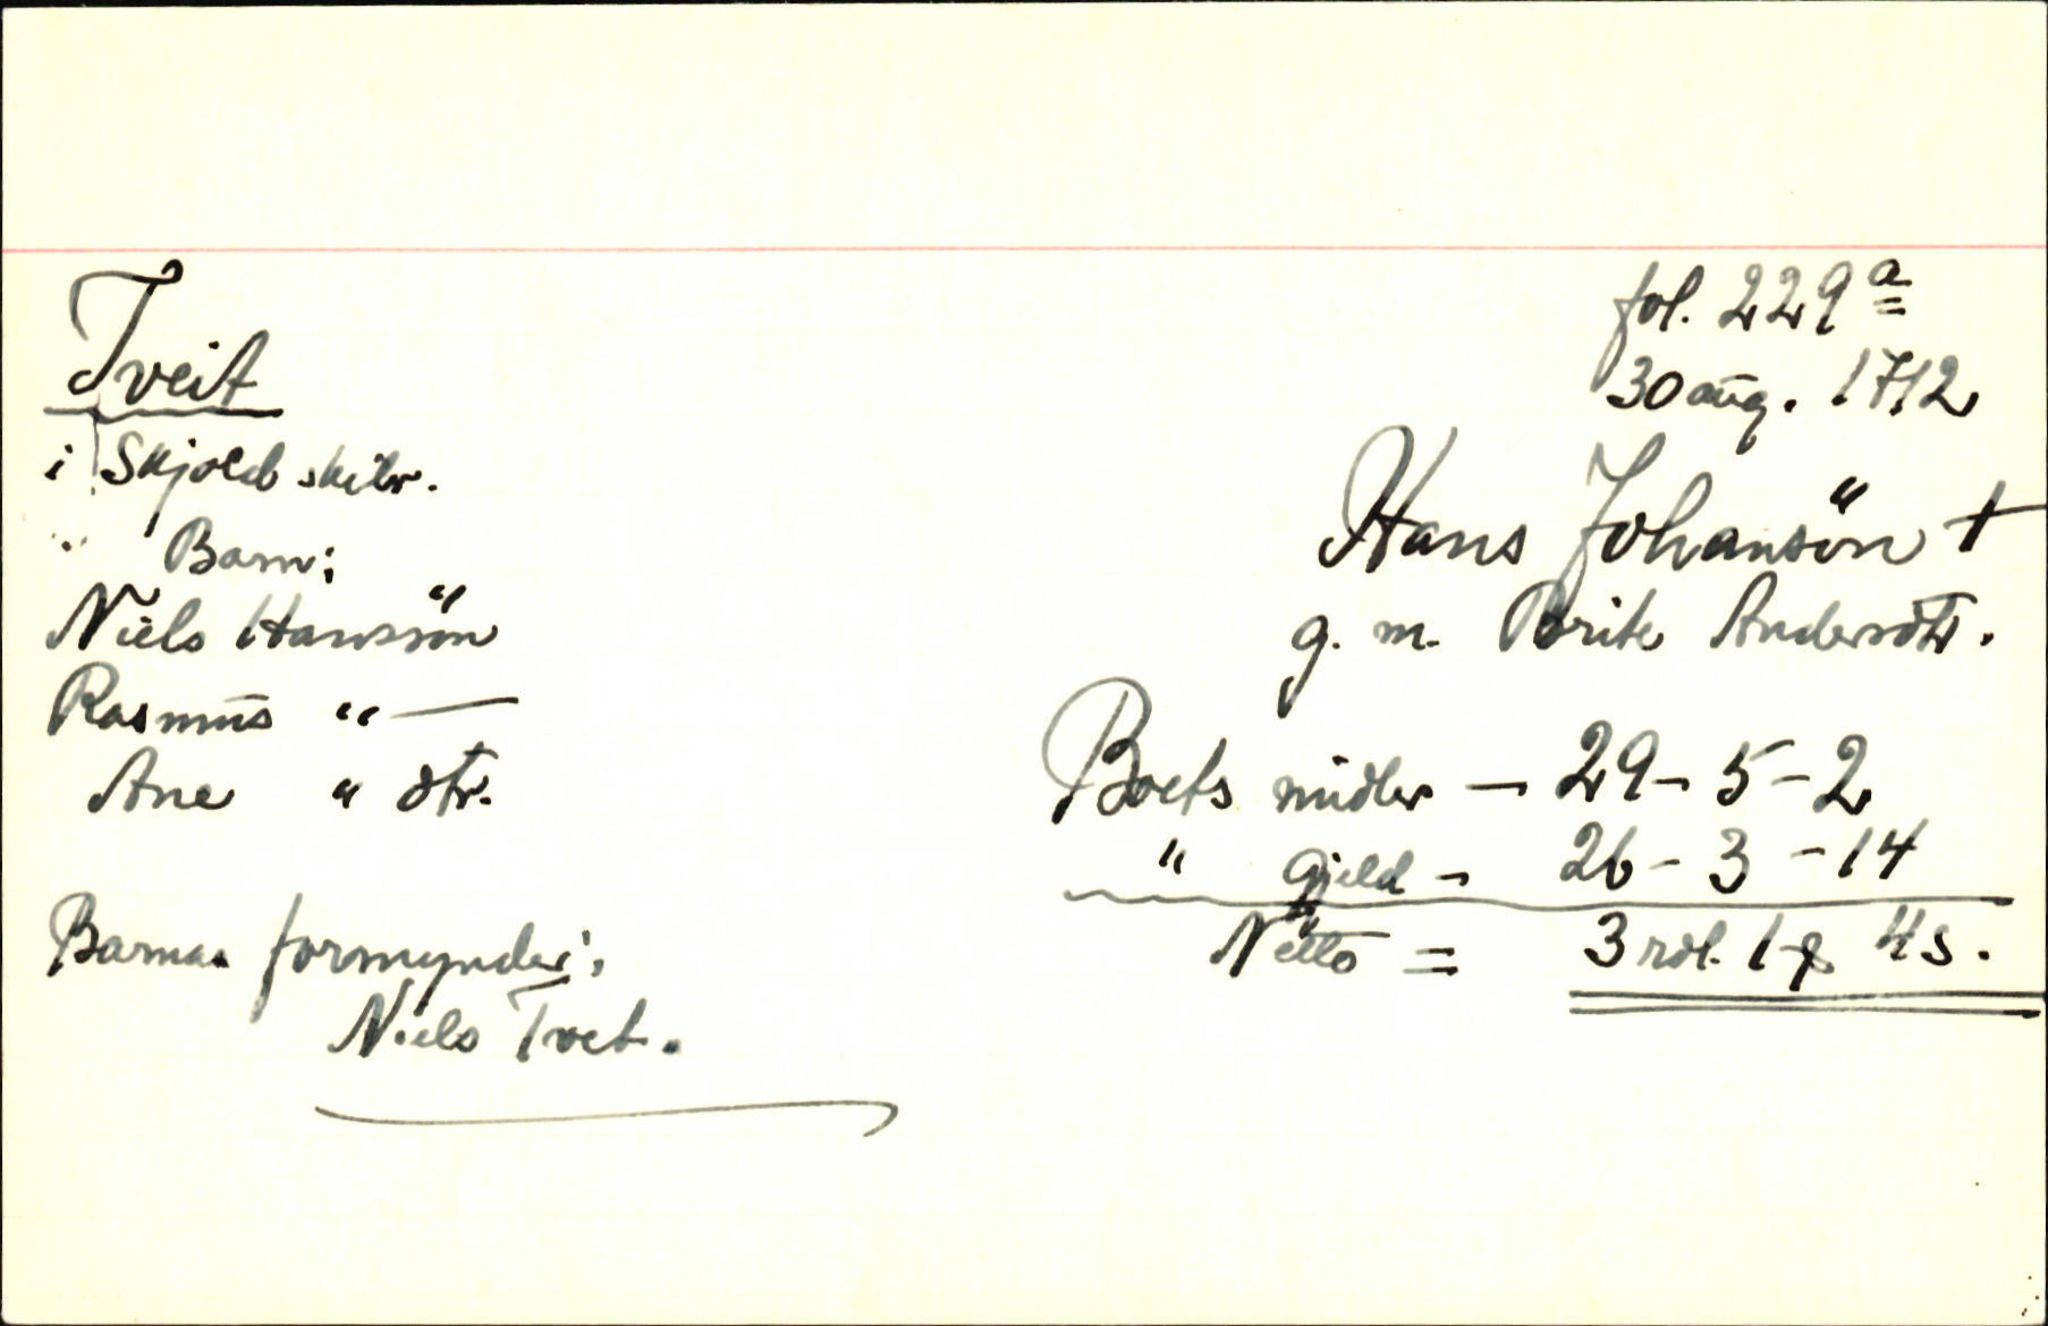 Tveit
i Skjold skibr.
Barn:
Niels Hanssön
Rasmus " —
Ane " dtr.
Barnas formynder:
Niels Tvet.
fol. 229 a
30 aug. 1712
Hans Johansön †
g. m. Brite Andersdtr.
Boets midler — 29 - 5 - 2
" Gjeld - 26 - 3 - 14
Netto = 3 rdl. 1 4 s.